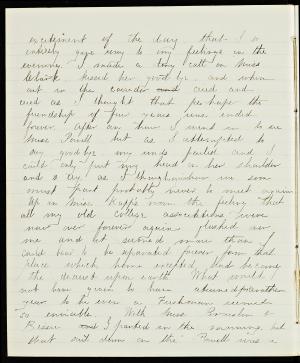 excitement of the day that I
entirely gave way to my feelings in the
evening. I made a long call on Miss
Clark. kissed her good bye and when
out in the corridor cried and
cried as I thought that perhaps the
friendship of four years was ended
forever. After an hour I went in to see
Miss Powell but as I attempted to
say good bye my lips failed and I
could only put my head on her shoulder
and cry as I
must part probably never to meet again
Up in Miss room the feeling that
all my old college associations were
now over forever again rushed over
me and it seemed more than I
could bear to be separated forever from that
place which home excepted had become
the dearest upon earth What would I
not have given to have another
year to be even a Freshman seemed
so enviable. With Miss &
Bessie I parted in the evening, but
what out down on the Powell was a